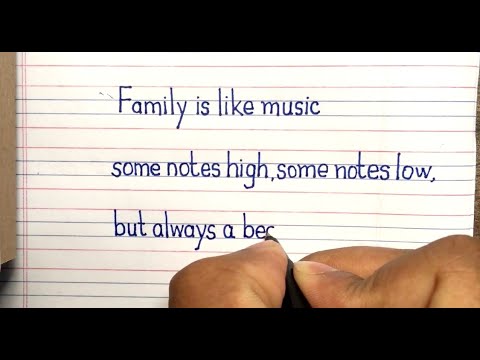 Family is like music
some notes high, some notes low,
but always a bec